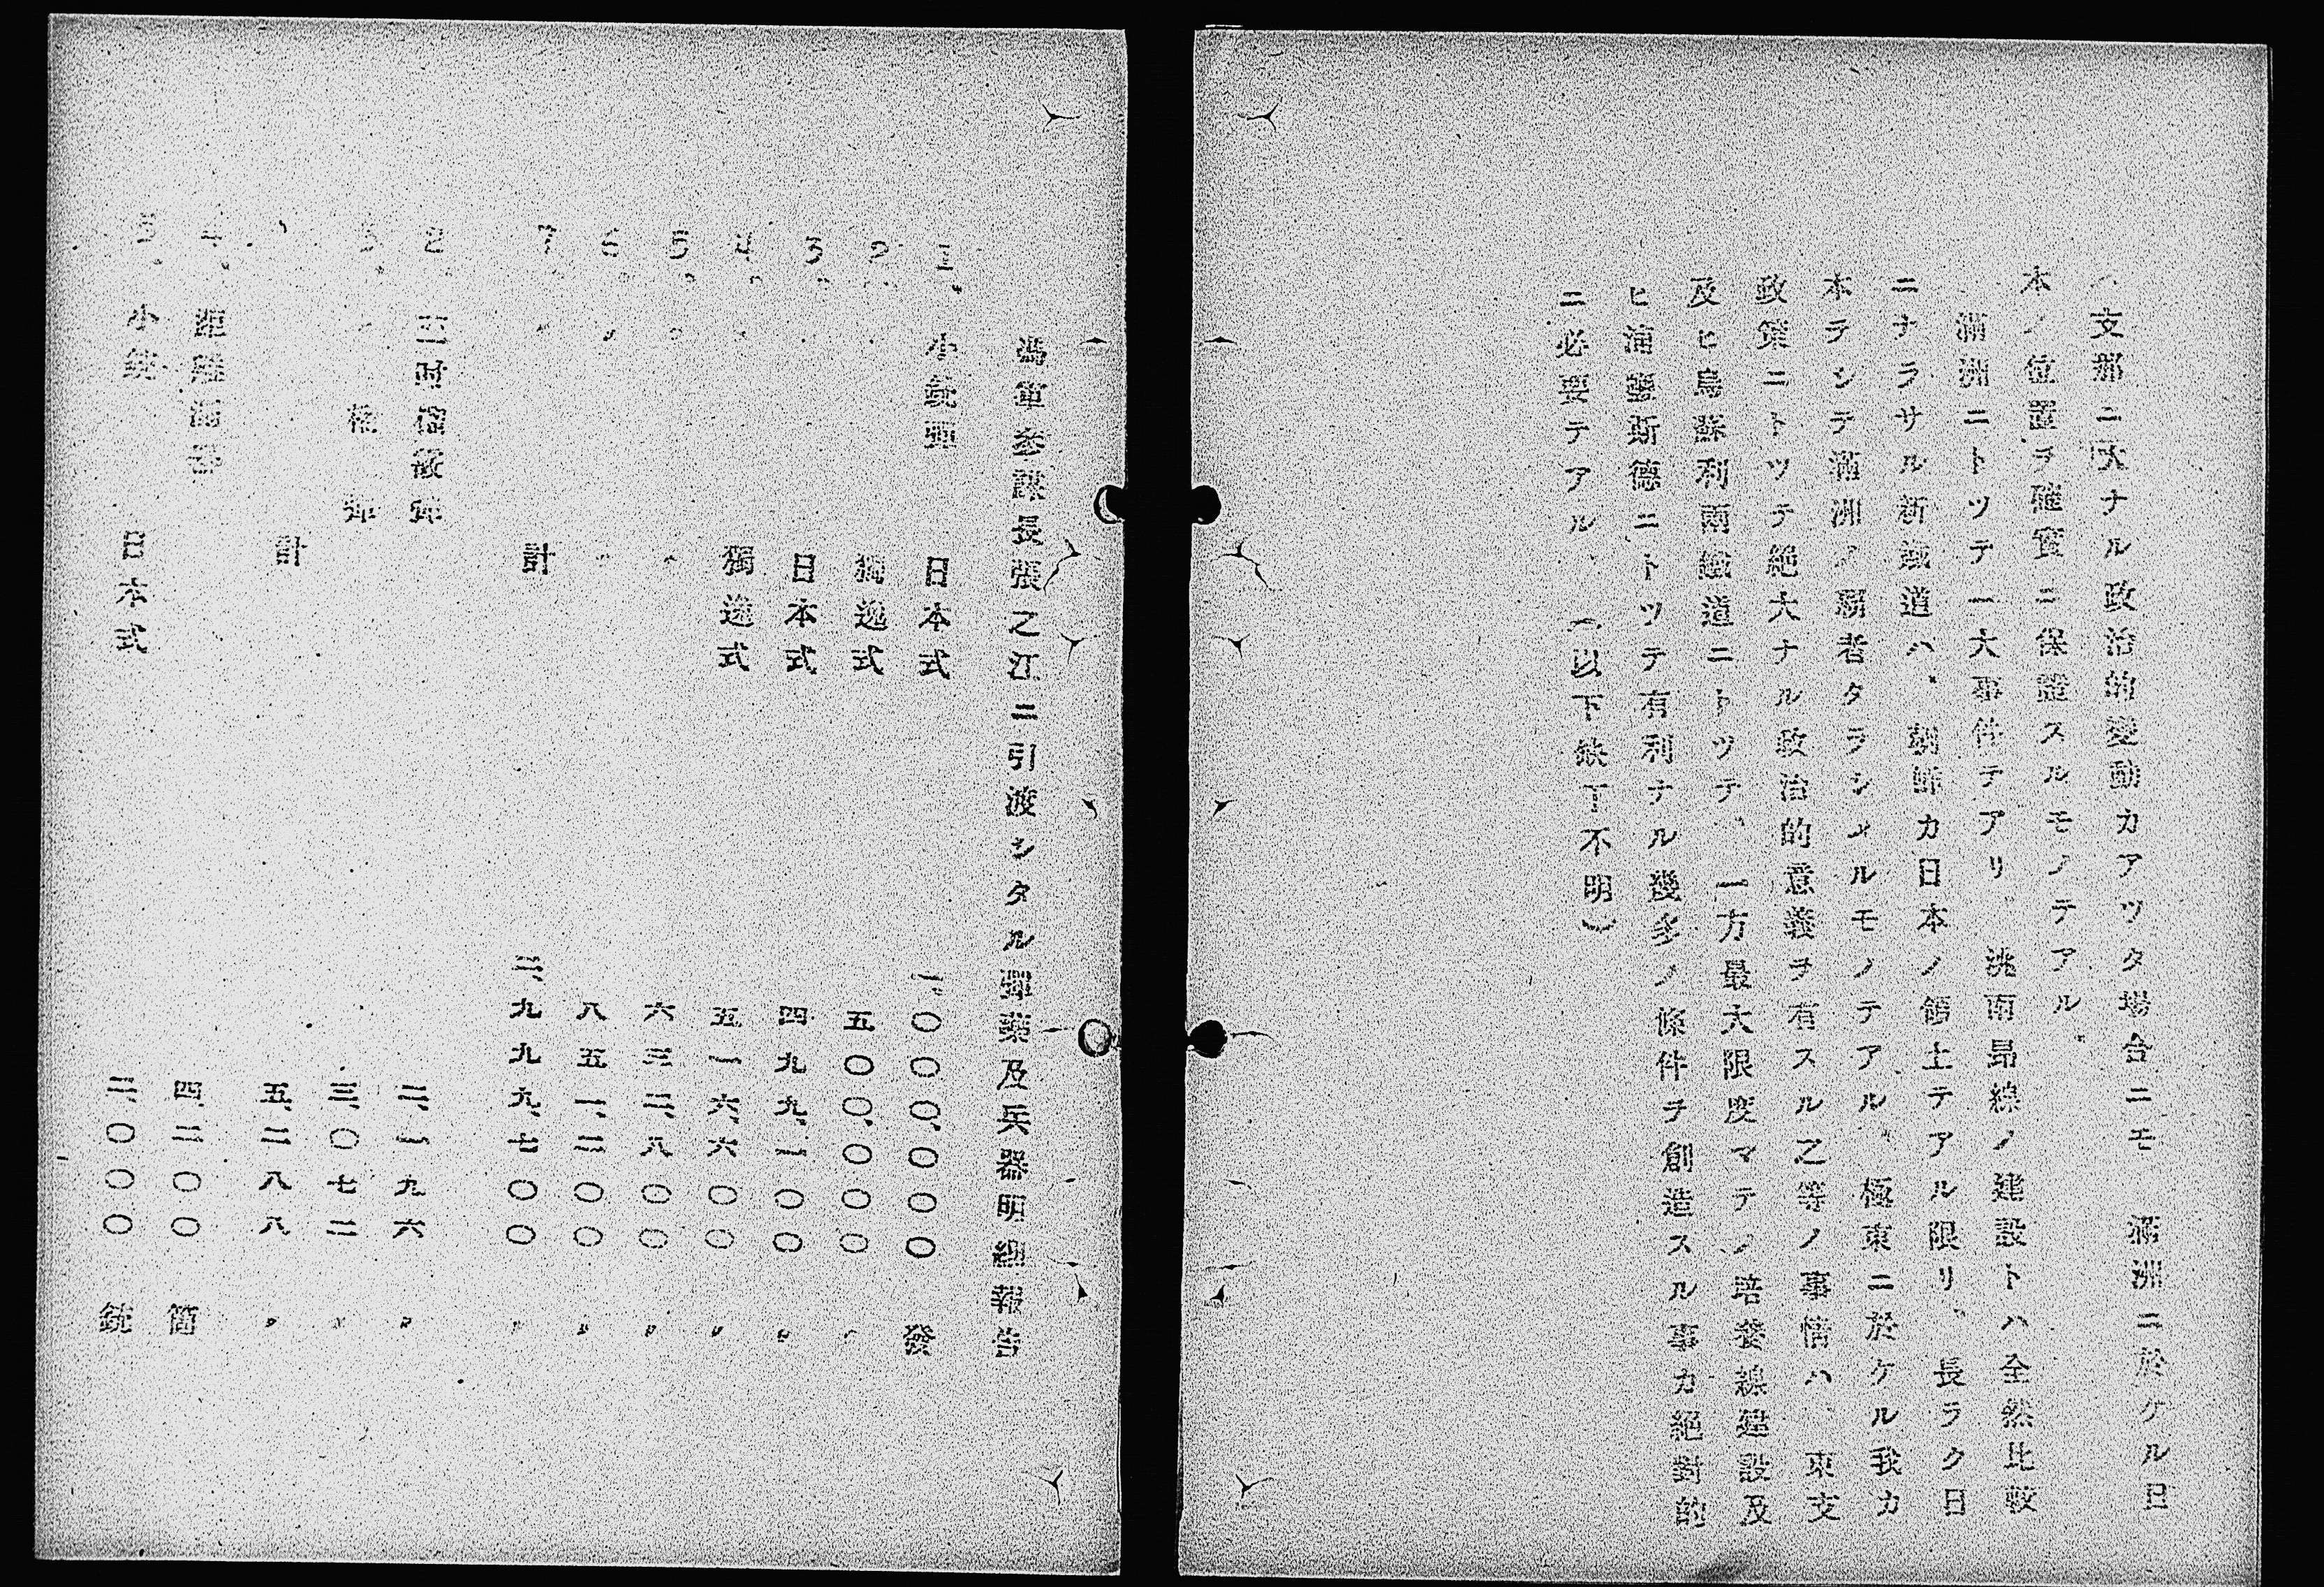 支那ニ大ナル政治的變動カアツタ場合ニモ 滿洲ニ於ケル日
本ノ位置ヲ確實ニ保證スルモノテアル。
滿洲ニトツテ一大事件テアリ 洮南昂線ノ建設トハ全然比較
ニナラサル新鐵道ハ、朝鮮カ日本ノ領土テアル限リ、長ラク日
本テシテ滿洲ノ覇者タラシメルモノテアル、極東ニ於ケル我カ
政策ニトツテ絶大ナル政治的意義ヲ有スル之等ノ事情ハ 東支
及ヒ烏蘇利兩鐵道ニトツテ、一方最大限度マテノ培養線建設及
ヒ浦鹽斯德ニトツテ有利ナル幾多ノ條件ヲ創造スル事カ絶對的
ニ必要テアル (以下欽丁不明)
馮軍參謀長張之江ニ引渡シタル彈藥及兵器明細報告
1. 小銃彈 日本式 一、〇〇〇、〇〇〇 發
2. 〃 獨逸式 五〇〇、〇〇〇 〃
3. 〃 日本式 四九九、一〇〇 〃
4. 〃 獨逸式 五一六、六〇〇 〃
5. 〃 〃 六三二、八〇〇 〃
6. 〃 〃 八五一、二〇〇 〃
7 〃 計 三、九九九、七〇〇 〃
2 三吋榴散彈 二、一九六 〃
3. 〃 榴彈 三、〇七二 〃
計 五、二八八 〃
4. 距離測器 四、二〇〇 箇
5. 小銃 日本式 二、〇〇〇 銃